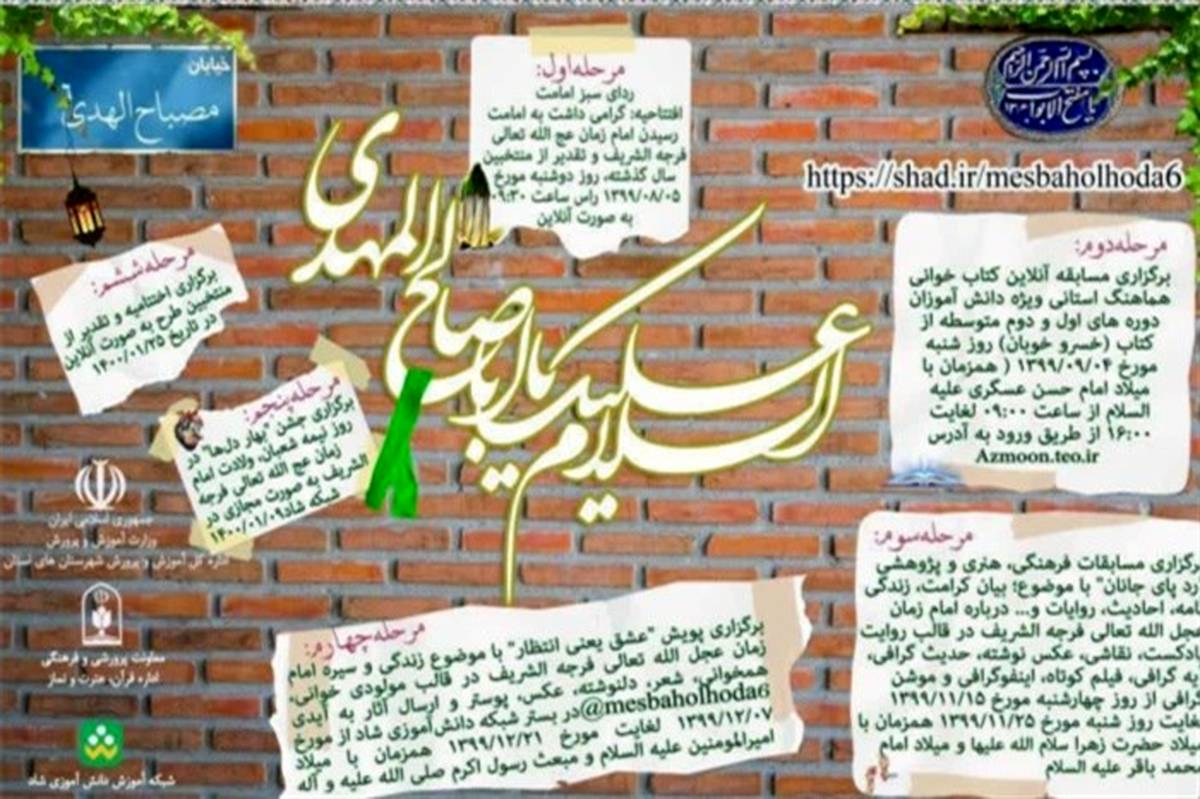 بسم الله الرحمن الرحیم
یا مفتح الابواب
خیابان
مصباح الهدی
https://shad.ir/mesbaholhoda6
السلام علیک یا اباصالح المهدی
مرحله اول:
ردای سبز امامت
افتتاحیه: گرامی داشت به امامت
رسیدن امام زمان عج الله تعالی
فرجه الشریف و تقدیر از منتخبین
سال گذشته، روز دوشنبه مورخ
۱۳۹۹/۰۸/۰۵ راس ساعت ۰۹:۳۰
به صورت آنلاین
مرحله دوم:
برگزاری مسابقه آنلاین کتاب خوانی
هماهنگ استانی ویژه دانش آموزان
دوره های اول و دوم متوسطه از
کتاب (خسرو خوبان) روز شنبه
مورخ ۱۳۹۹/۰۹/۰۴ ( همزمان با
میلاد امام حسن عسکری علیه
السلام از ساعت ۰۹:۰۰ لغایت
۱۶:۰۰ از طریق ورود به آدرس
Azmoon.teo.ir
مرحله سوم:
رگزاری مسابقات فرهنگی، هنری و پژوهشی
رد پای جانان" با موضوع؛ بیان کرامت، زندگی
امه، احادیث، روایات و... درباره امام زمان
عجل الله تعالی فرجه الشریف در قالب روایت
ادکست، نقاشی، عکس نوشته، حدیث گرافی،
یه گرافی، فیلم کوتاه، اینفوگرافی و موشن
رافی از روز چهارشنبه مورخ ۱۳۹۹/۱۱/۱۵
غایت روز شنبه مورخ ۱۳۹۹/۱۱/۲۵ همزمان با
یلاد حضرت زهرا سلام الله علیها و میلاد امام
حمد باقر علیه السلام
مرحله چهارم:
برگزاری پویش "عشق یعنی انتظار" با موضوع زندگی و سیره امام
زمان عجل الله تعالی فرجه الشریف در قالب مولودی خوانی،
همخوانی، شعر، دلنوشته، عکس، پوستر و ارسال آثار به آیدی
@mesbaholhoda6 در بستر شبکه دانش‌آموزی شاد از مورخ
۱۳۹۹/۱۲/۰۷ لغایت مورخ ۱۳۹۹/۱۲/۲۱ همزمان با میلاد
امیرالمومنین علیه السلام و مبعث رسول اکرم صلی الله علیه و آله
مرحله پنجم:
برگزاری جشن "بهار دل‌ها" در
روز نیمه شعبان، ولادت امام
زمان عج الله تعالی فرجه
الشریف به صورت مجازی در
شبکه شاد ۱۴۰۰/۰۱/۰۹
مرحله ششم:
برگزاری اختتامیه و تقدیر از
منتخبین طرح به صورت آنلاین
در تاریخ ۱۴۰۰/۰۱/۲۵
جمهوری اسلامی ایران
وزارت آموزش و پرورش
اداره کل آموزش و پرورش شهرستان های استان
معاونت پرورشی و فرهنگی
اداره قرآن، عترت و نماز
شبکه آموزش دانش آموزی شاد